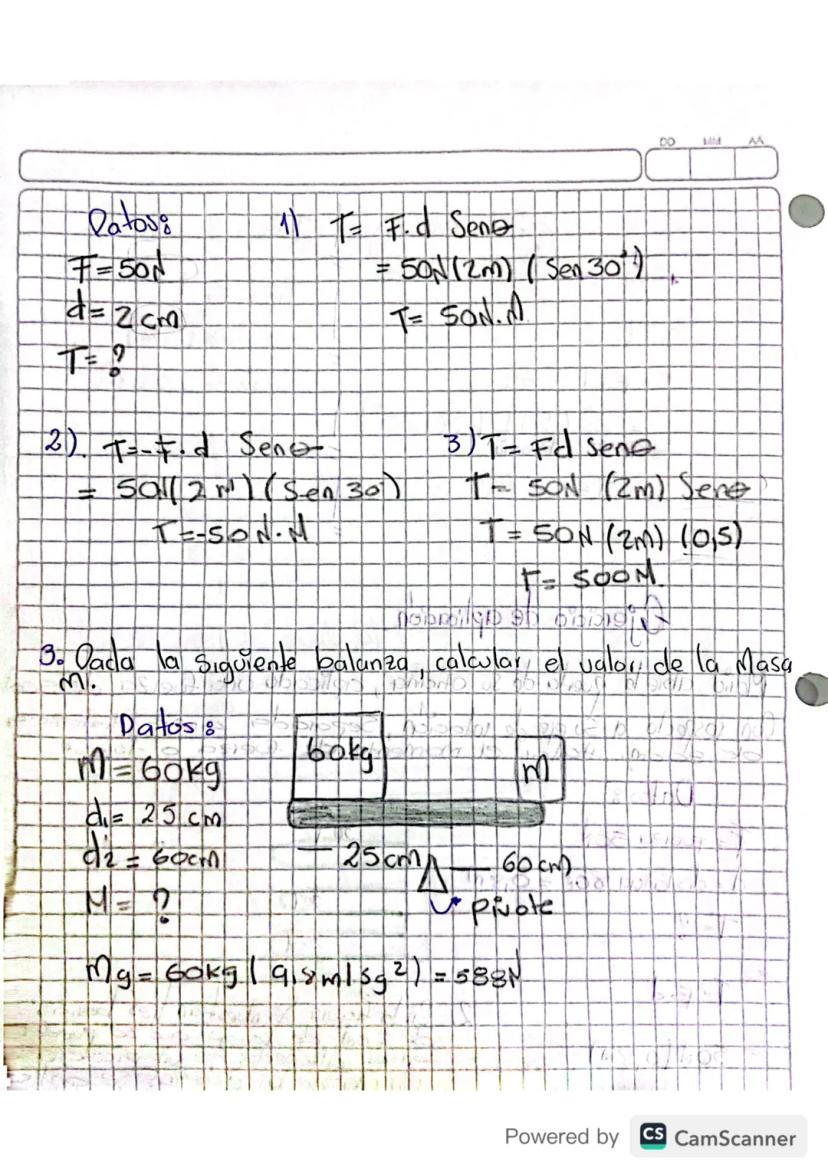 DD MM AA
Datos:
F=50N
d= 2 cm
T= ?
1) T= F.d Senθ
= 50N(2m) (Sen30°)
T= 50N.M
2). T=-F.d Senθ
= 50N(2m)(Sen 30°)
T=-50N.M
3) T= Fd Senθ
T= 50N (2m) Senθ
T= 50N (2m) (0,5)
T= 500M.
Ejercicio de aplicación
3. Dada la siguiente balanza, calcular el valor de la Masa
m.
Datos:
M=60kg
d1= 25 cm
d2= 60cm
M= ?
60kg
m
25cm
60cm
pivote
Mg= 60kg (9,8m/sg²) =588N
Powered by CS CamScanner